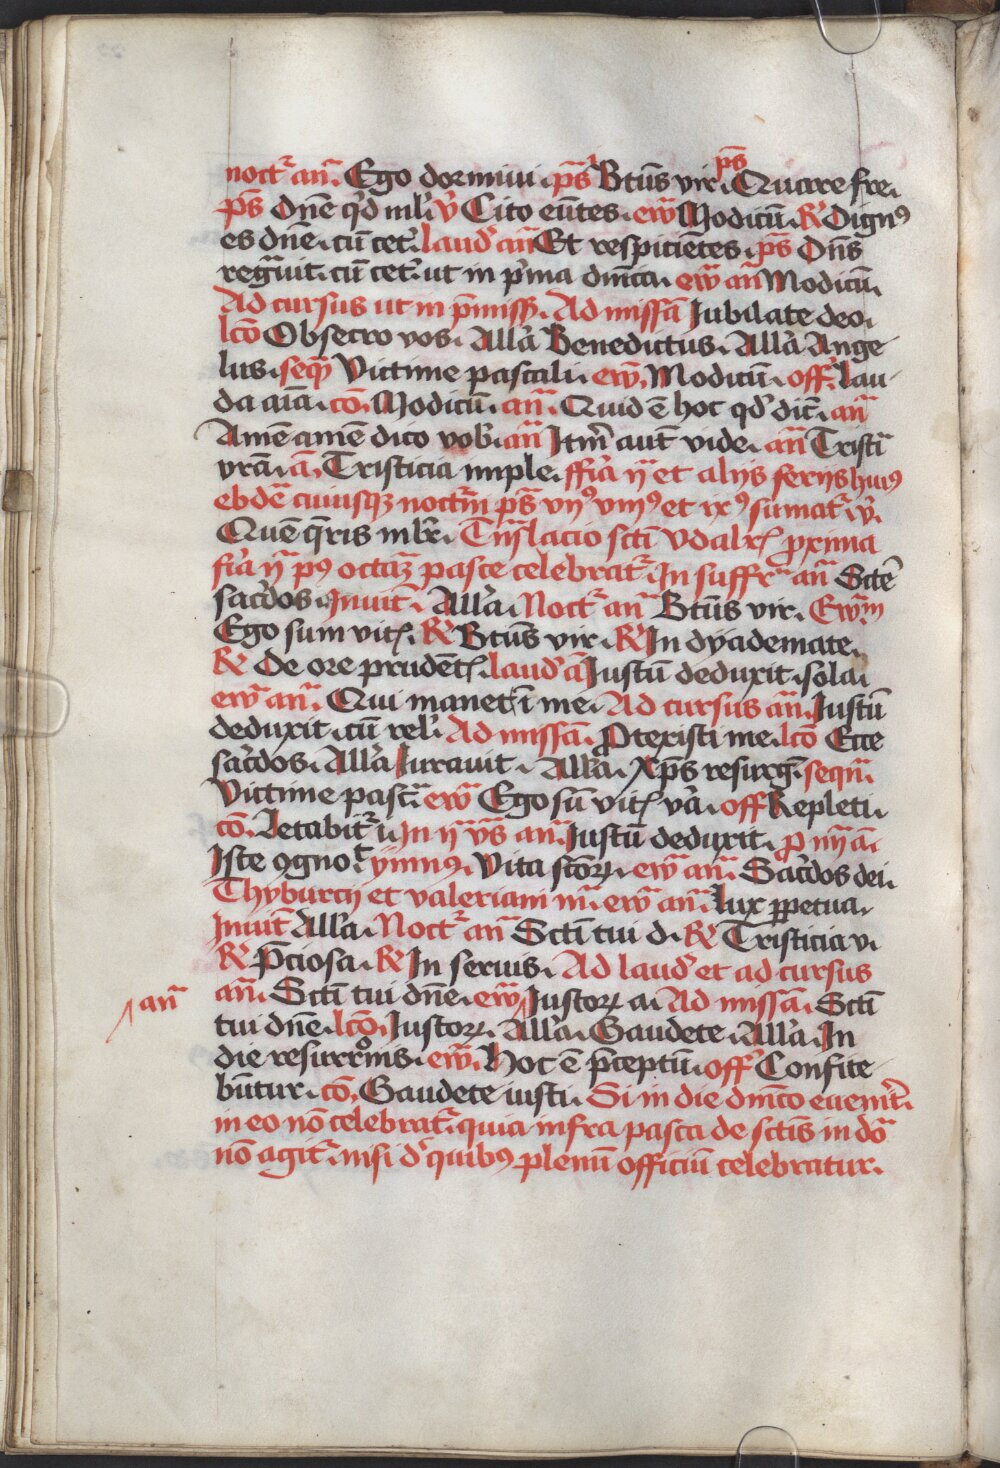 noct᷑ an̄. Ego dormiui. ps̄ Bt̄us vir. ps̄ Quare fre.
ps̄ Dn̄e qͥd ml̓i. v̓ Cito eūtes. ew̄ Modicū. R̓ Dignꝰ
es dn̄e. cū cet᷑. laud̓ an̄ Et respiciētes. ps̄ Dn̄s
regͣuit. cū cet᷑. ut in pͥma dm̄ca. ew̄ an̄ Modicū.
Ad cursus ut in p̄miss. Ad missā Jubilate deo.
lc̄o Obsecro vos. All̓a Benedictus. All̓a Ange
lus. seqͣ Victime pascali. ew̄. Modicū. off᷑. lau
da aīa. cō. Modicū. an̄. Quid ē hoc qd̓ dic̄. an̄
Amē amē dico vob̓. an̄ Itm̄ aut̄ vide. an̄ Tristi
vrā. a. Tristicia imple. ff̓ia ij et alijs ferijs huiꝰ
ebdē cuiusqꝫ noct̄m ps̄ vijꝰ viijꝰ et ixꝰ sumat᷑. v̓.
Quē q̄ris mlr̄. Trͣslacio scti vdalrꝭ proxima
fi̓a ij pꝰ octaꝫ pasce celebrat᷑. In suffrͣ an̄ Scte
sac̓dos. Inuit̄. All̓a. Noct᷑ an̄ Bt̄us vir. Ew̄m
Ego sum vitꝭ. R̓ Bt̄us vir. R̓ In dyademate.
R̓ De ore prudētꝭ. laud̓ a Justū deduxit. sola.
ew̄ an̄. Qui manet ī me. Ad cursus an̄. Justū
deduxit. cū rel̓. Ad missā. Ptexisti me. lcō Ecce
sac̓dos. All̓a Jurauit. All̓a. Xp̄s resurgē. seqn̄.
Victime pasc̄ ew̄ Ego sū vitꝭ va. off Repleti.
cō. Letabit᷑ iu. In ij vs̄ an̄. Justū deduxit. p iiij a.
Iste ꝯgnoͭ. ymnꝰ. Vita sctorꝝ. ew̄ an̄. Sac̓dos dei.
Thyburcij et valeriani m̄. ew̄ an̄. Lux ꝑpetua.
Inuit̄ All̓a. Noct᷑ an̄ Scti tui d. R̓ Tristicia v.
R̓ P̄ciosa. R̓ In seruis. Ad laud̓ et ad cursus
an̄. Scti tui dn̄e. ew̄ Justorꝝ a. Ad missā. Scti
an̄
tui dn̄e. lcō. Justorꝝ. All̓a. Gaudete. All̓a. In
die resurrōnis. ew̄. Hoc ē p̄ceptū. off᷑ Confite
būtur. cō. Gaudete iusti. Si in die dm̄co euenit̓.
in eo nō celebrat᷑. quia infra pasca de sctis in dō
nō agit᷑. nisi d̓ quibꝰ plenū officiū celebratur.